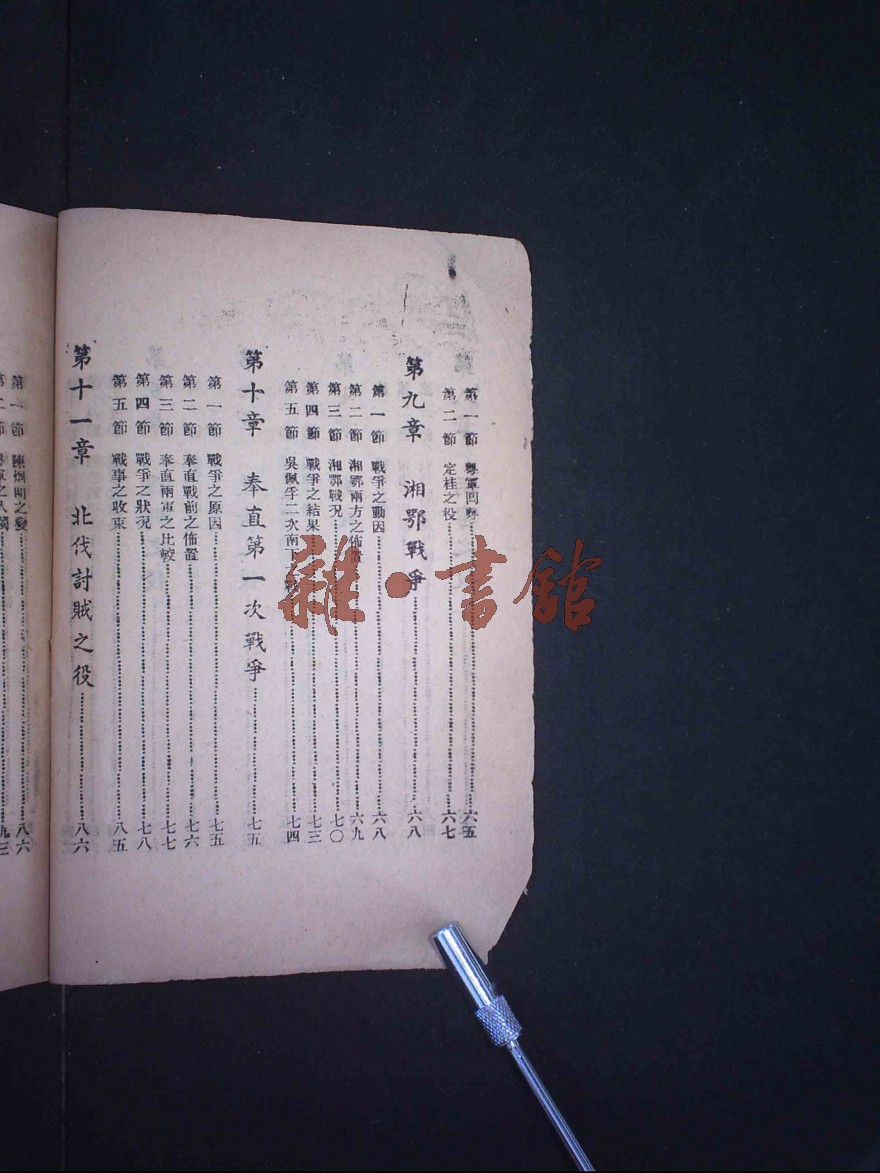 第一節 粵軍回粵 六五
第二節 定桂之役 六七
第九章 湘鄂戰爭 六八
第一節 戰爭之動因 六八
第二節 湘鄂兩方之佈 六九
第三節 湘鄂戰况 七〇
第四節 戰爭之結果 七三
第五節 吳佩孚二次南下 七四
第十章 奉直第一次戰爭 七五
第一節 戰爭之原因 七五
第二節 奉直戰前之佈置 七六
第三節 奉直兩軍之比較 七七
第四節 戰爭之狀况 七八
第五節 戰事之收束 八五
第十一章 北伐討賊之役 八六
第一節 陳炯明之變 八六
第二節 九三
雜·書館